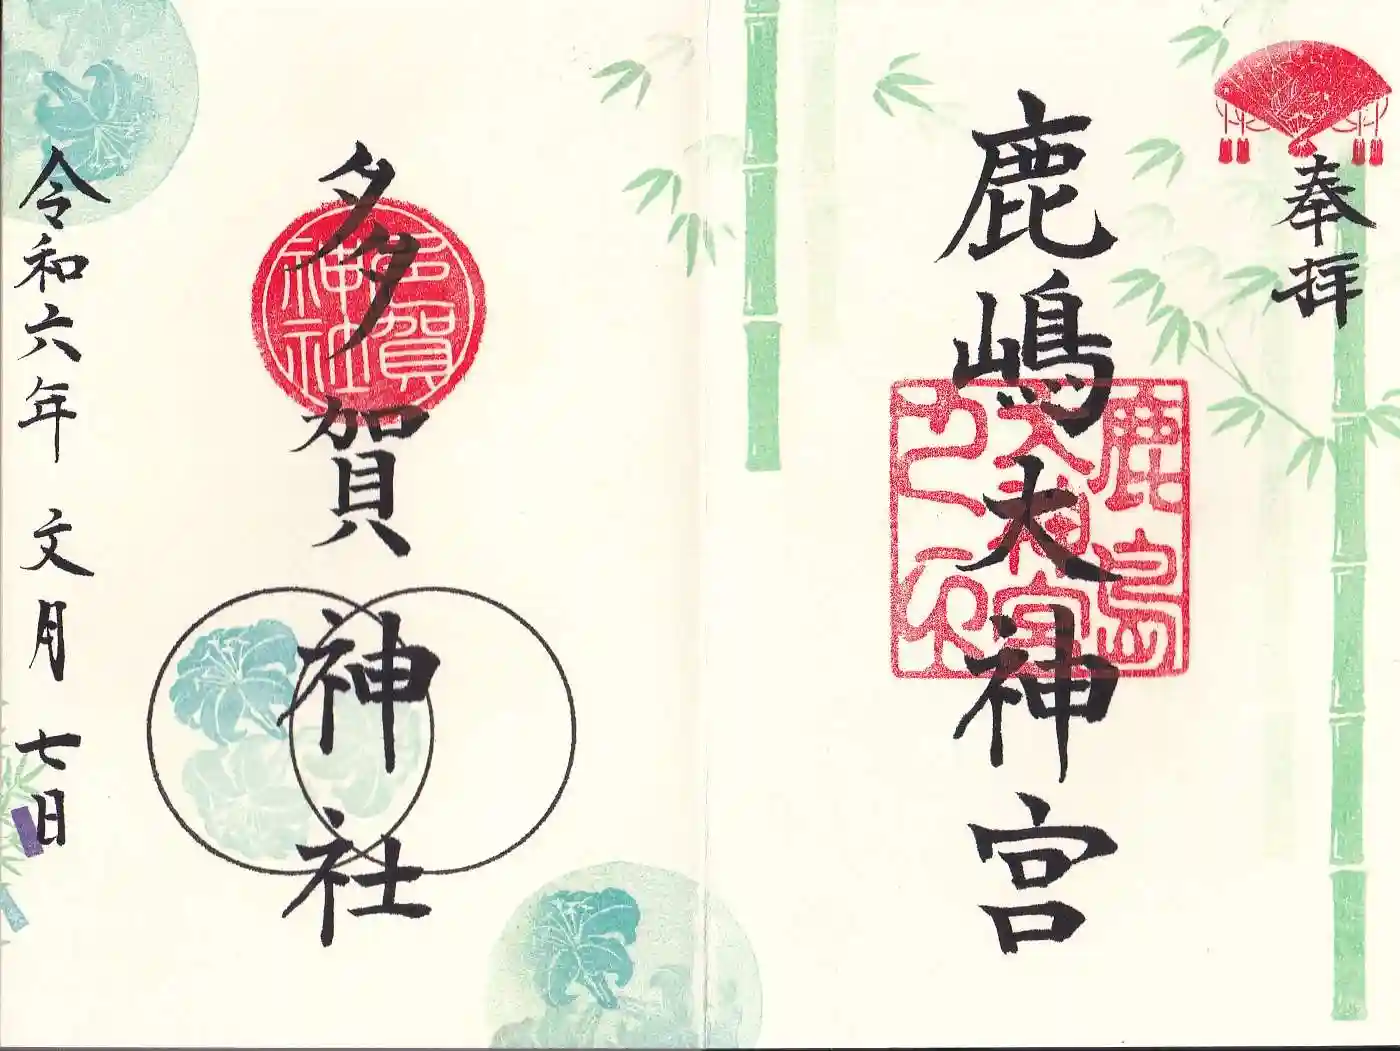 奉拝
鹿嶋大神宮
鹿島
大神宮
之印
多賀神社
多賀
神社
令和六年 文月 七日